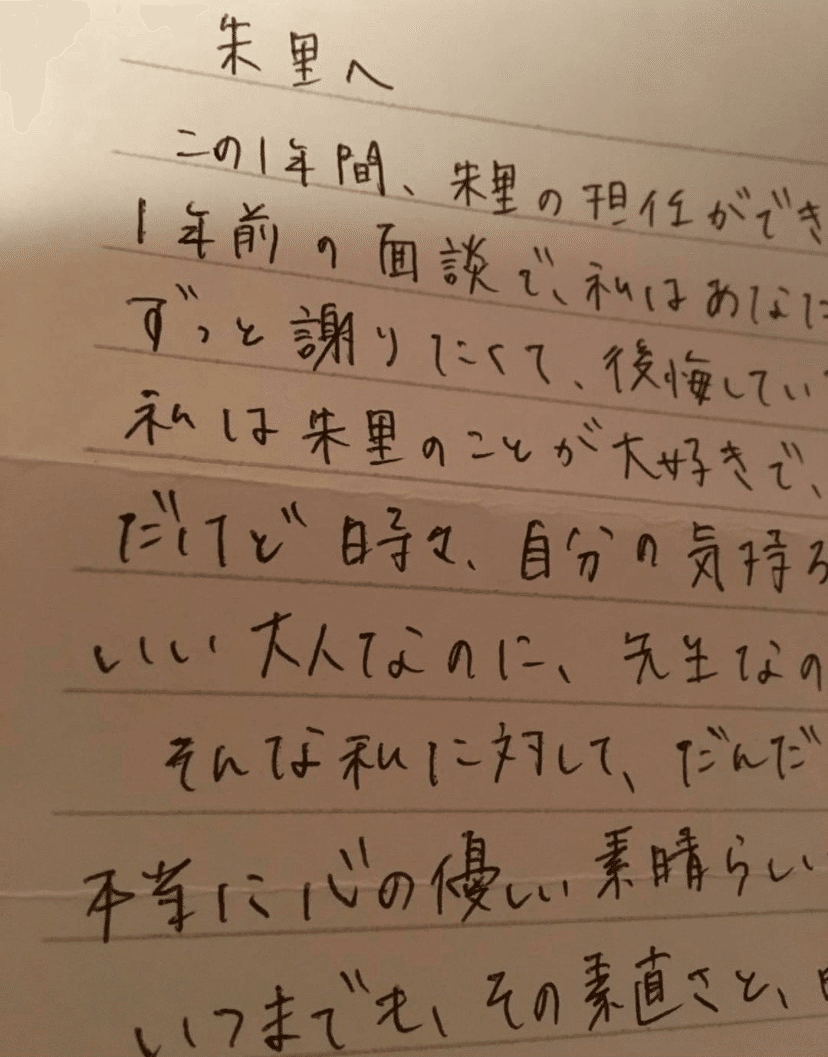 朱里へ
この1年間、朱里の担任ができ
1年前の面談で、私はあなた
ずっと謝りたくて、後悔してい
私は朱里のことが大好きで、
だけど時々、自分の気持ち
いい大人なのに、先生なの
そんな私に対して、だんだ
本当に心の優しい素晴らしい
いつまでも、その素直さと、